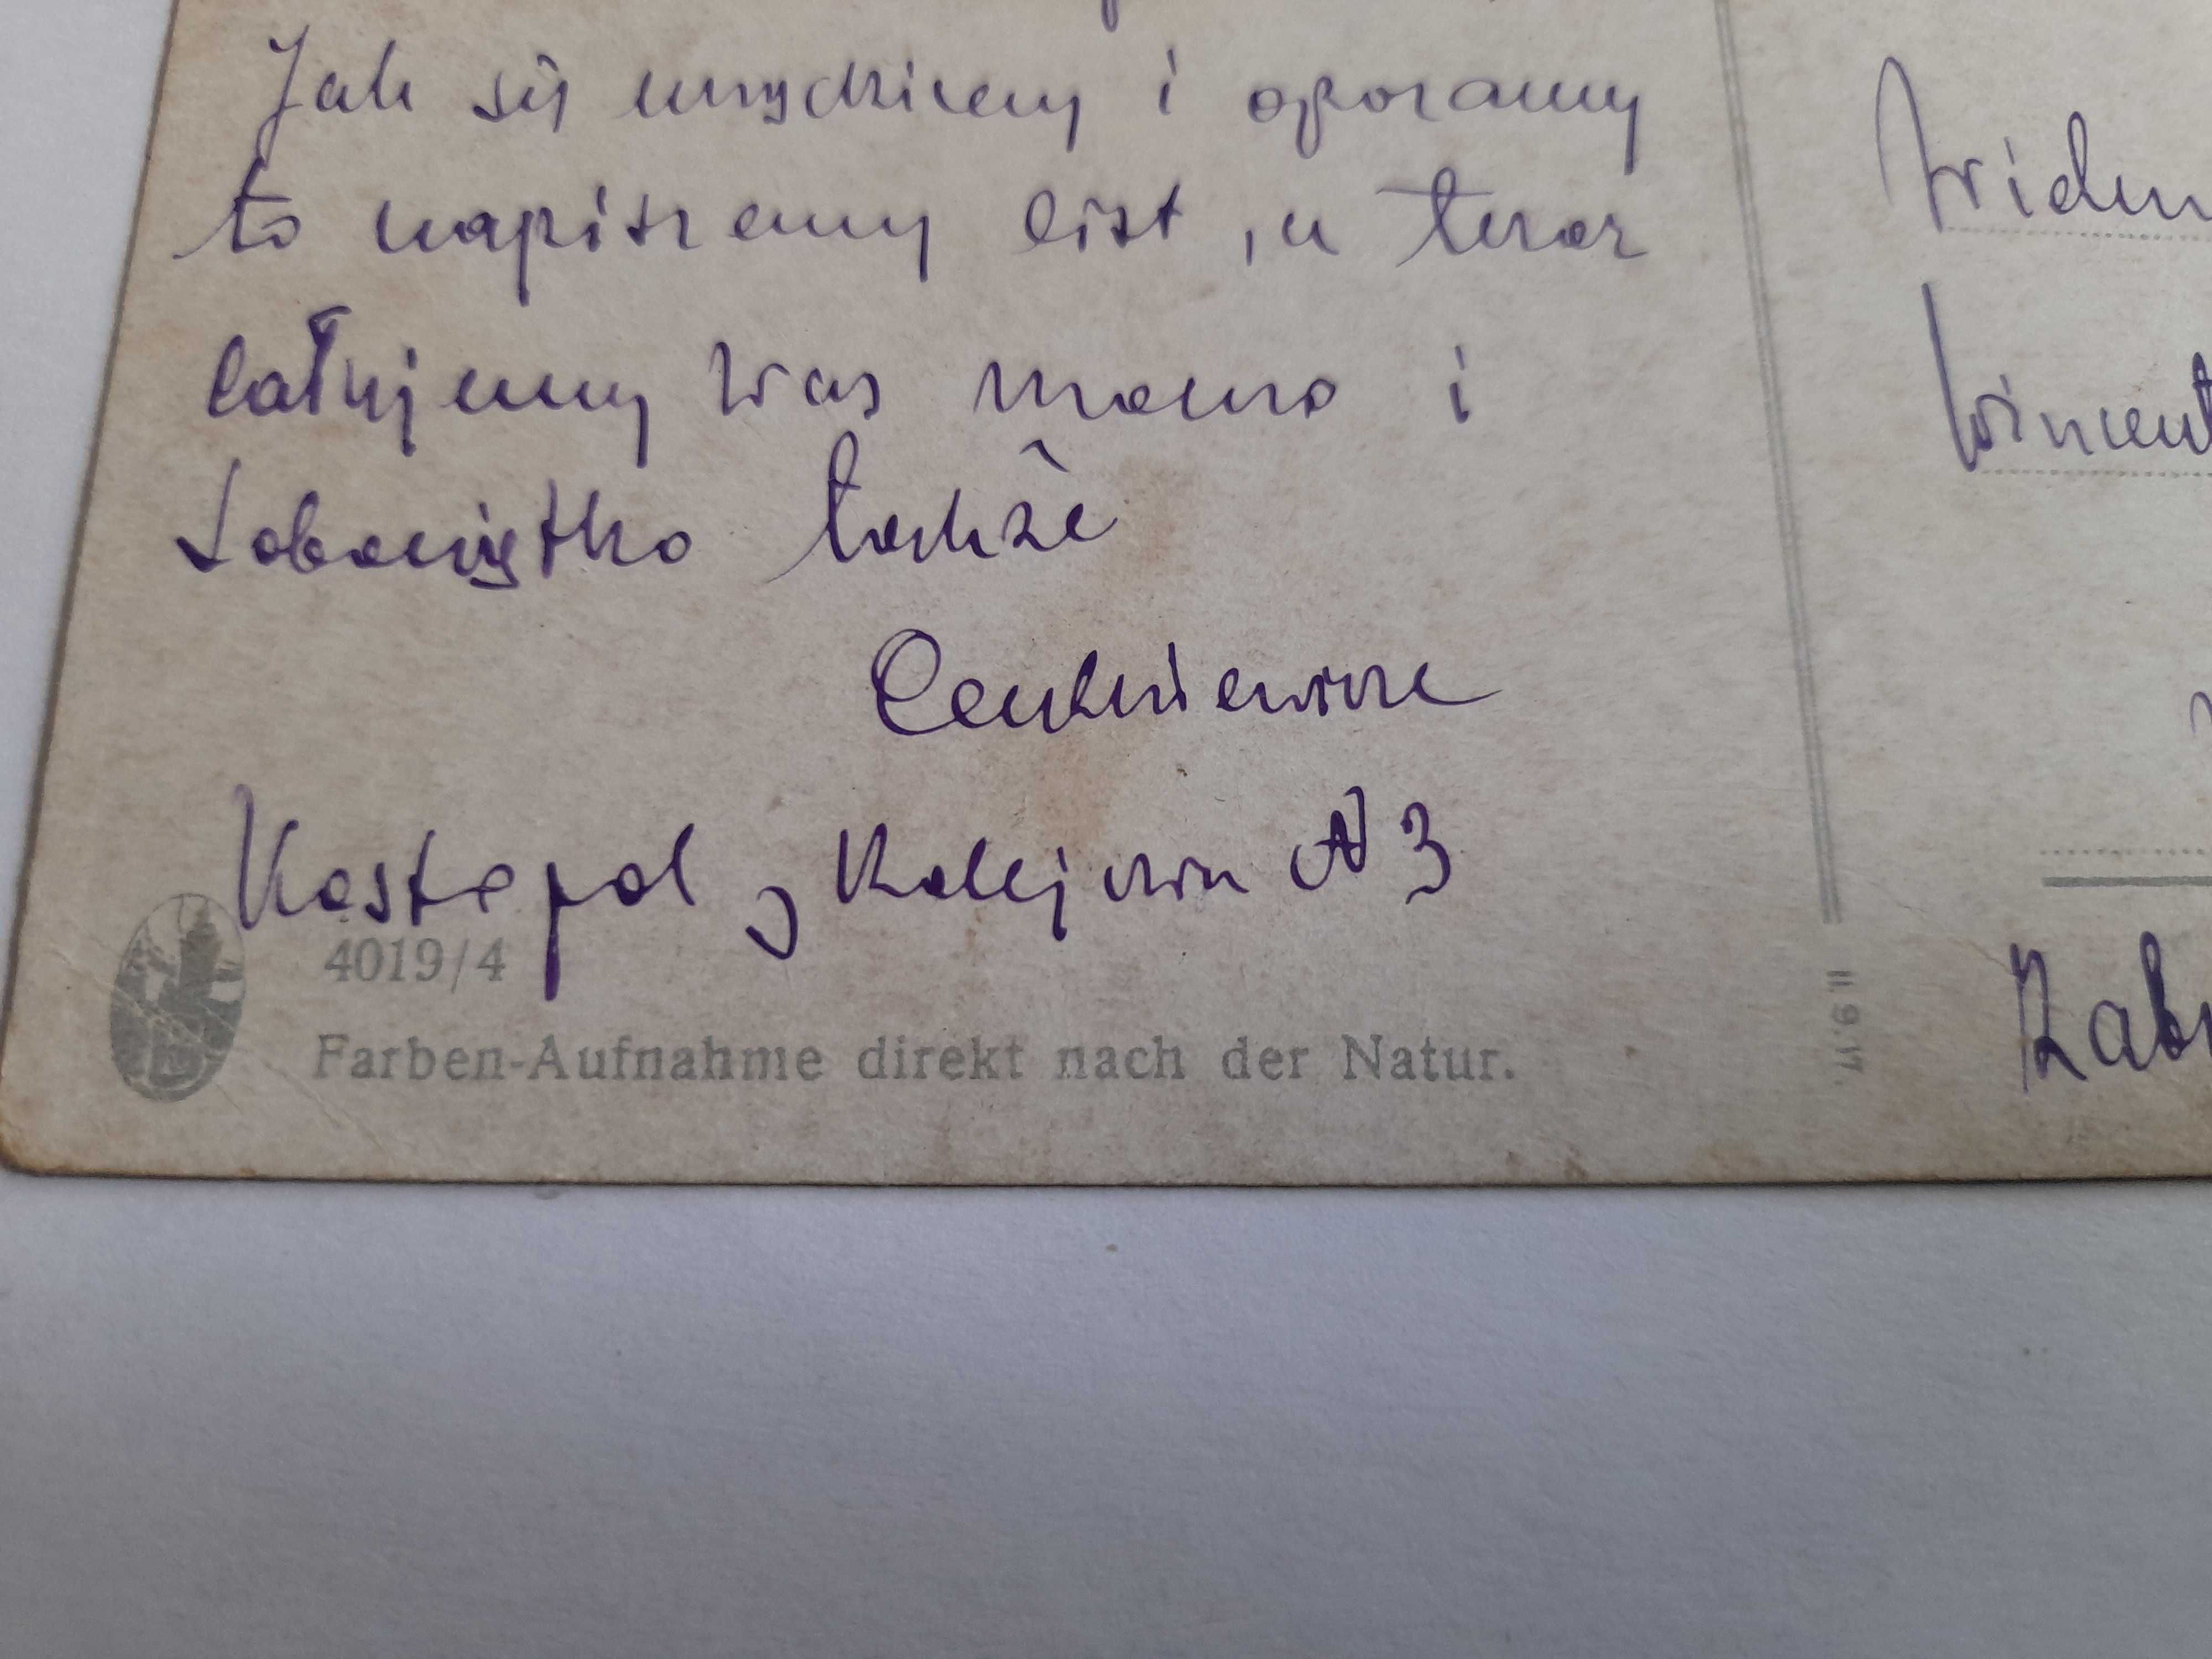 Jak się urządzimy i oporamy
to napiszemy list, a teraz
całujemy was mocno i
także
Kostopol, Kolejowa N 3
4019/4
Farben-Aufnahme direkt nach der Natur.
Widem
Wincent
Zab